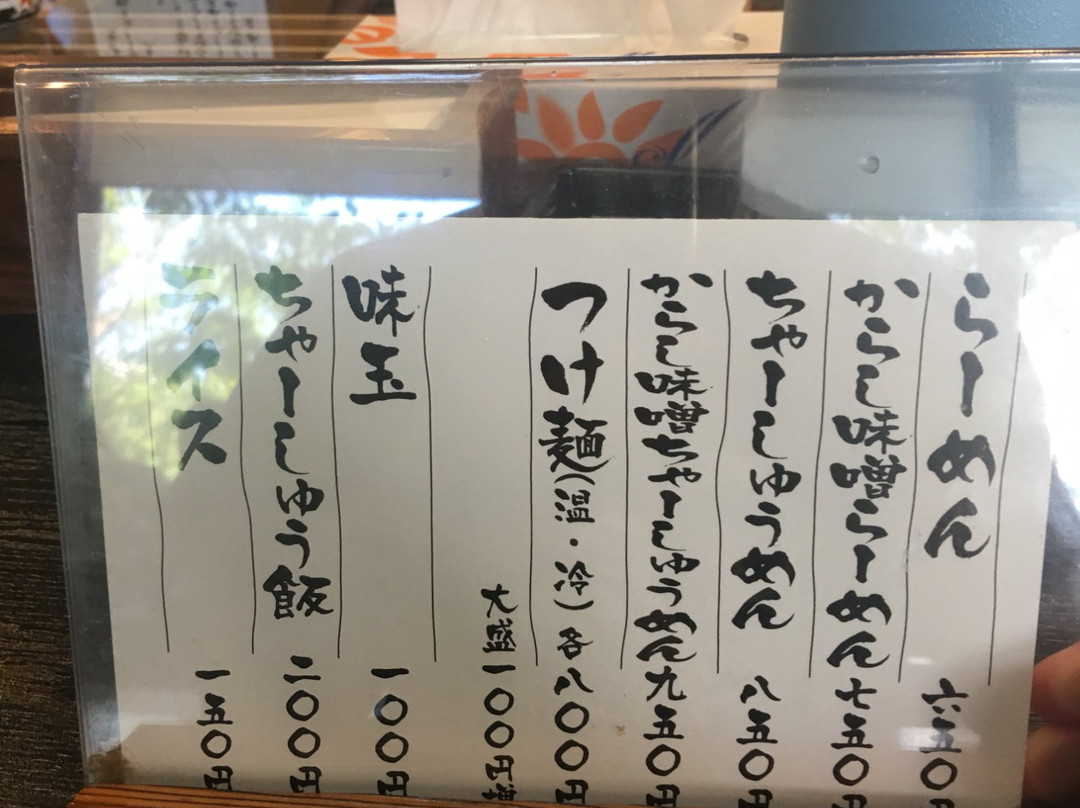 らーめん 六五〇円
からし味噌らーめん 七五〇円
ちゃーしゅうめん 八五〇円
からし味噌ちゃーしゅうめん 九五〇円
つけ麺(温・冷)各八〇〇円
大盛一〇〇円増
味玉 一〇〇円
ちゃーしゅう飯 二〇〇円
ライス 一五〇円